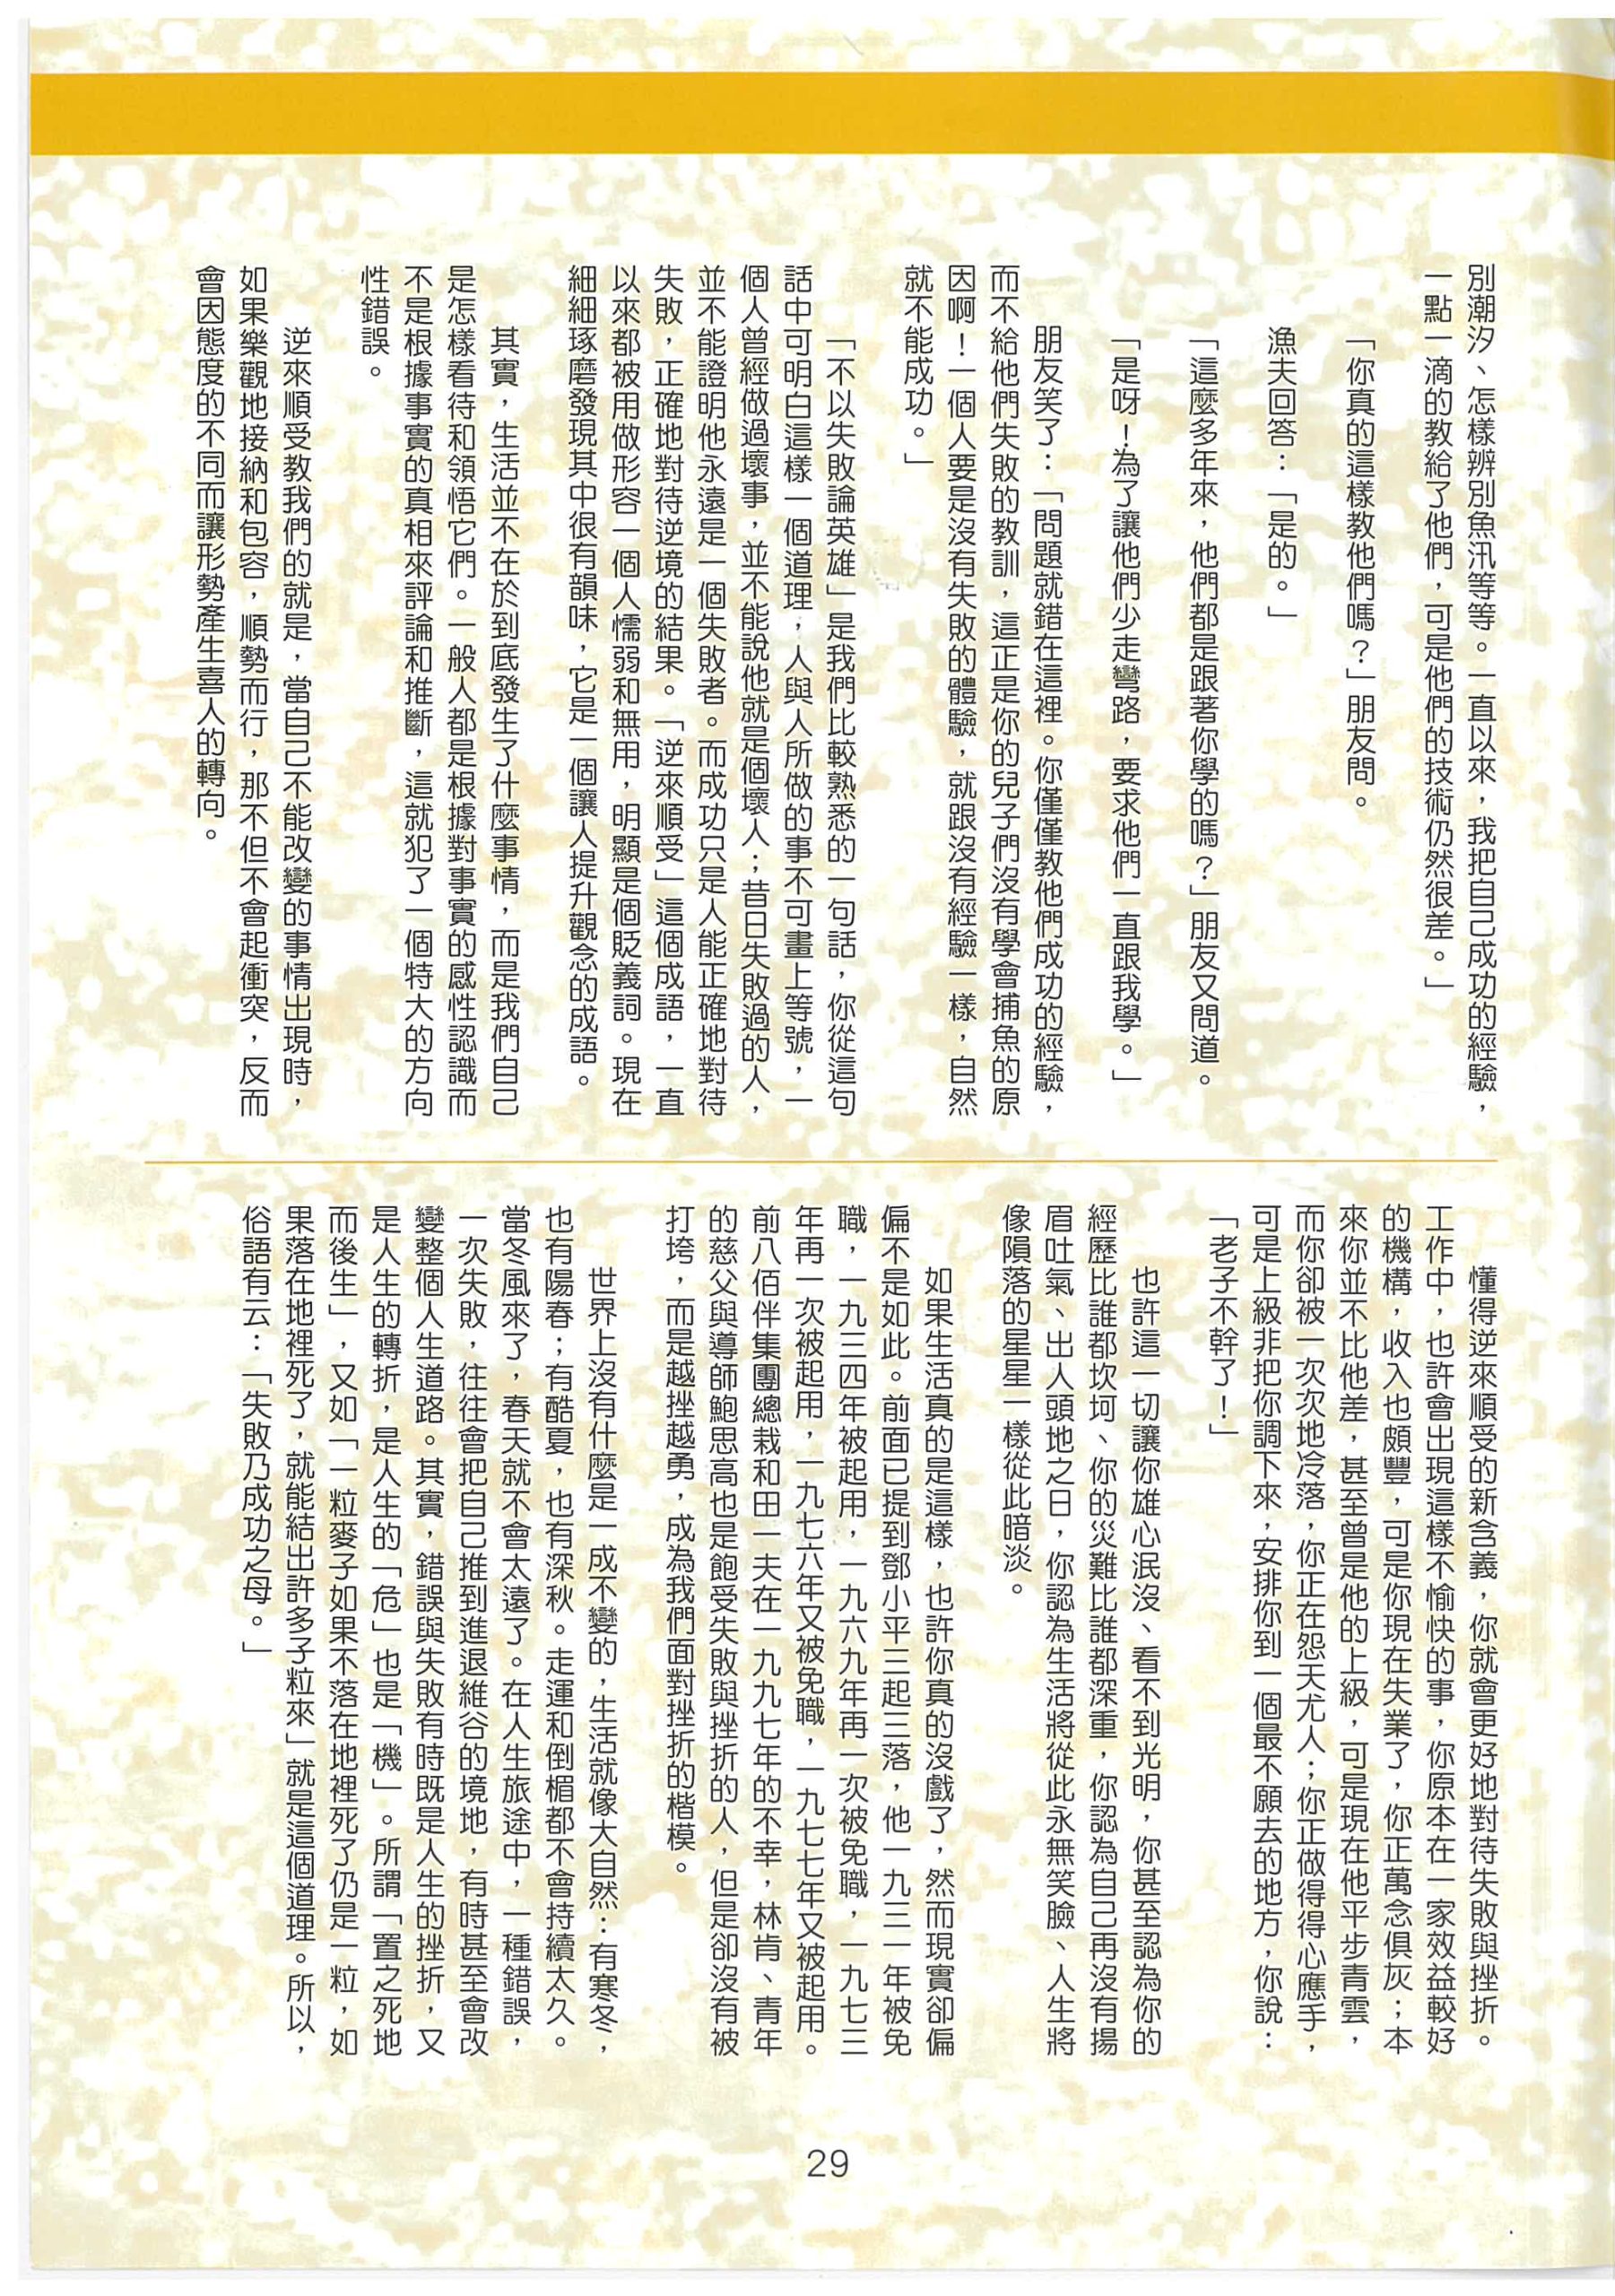 別潮汐、怎樣辨別魚汛等等。一直以來，我把自己成功的經驗，
一點一滴的教給了他們，可是他們的技術仍然很差。」
「你真的這樣教他們嗎？」朋友問。
漁夫回答：「是的。」
「這麼多年來，他們都是跟著你學的嗎？」朋友又問道。
「是呀！為了讓他們少走彎路，要求他們一直跟我學。」
朋友笑了：「問題就錯在這裡。你僅僅教他們成功的經驗，
而不給他們失敗的教訓，這正是你的兒子們沒有學會捕魚的原
因啊！一個人要是沒有失敗的體驗，就跟沒有經驗一樣，自然
就不能成功。」
「不以失敗論英雄」是我們比較熟悉的一句話，你從這句
話中可明白這樣一個道理，人與人所做的事不可畫上等號，一
個人曾經做過壞事，並不能說他就是個壞人；昔日失敗過的人，
並不能證明他永遠是一個失敗者。而成功只是人能正確地對待
失敗，正確地對待逆境的結果。「逆來順受」這個成語，一直
以來都被用做形容一個人懦弱和無用，明顯是個貶義詞。現在
細細琢磨發現其中很有韻味，它是一個讓人提升觀念的成語。
其實，生活並不在於到底發生了什麼事情，而是我們自己
是怎樣看待和領悟它們。一般人都是根據對事實的感性認識而
不是根據事實的真相來評論和推斷，這就犯了一個特大的方向
性錯誤。
逆來順受教我們的就是，當自己不能改變的事情出現時，
如果樂觀地接納和包容，順勢而行，那不但不會起衝突，反而
會因態度的不同而讓形勢產生喜人的轉向。
懂得逆來順受的新含義，你就會更好地對待失敗與挫折。
工作中，也許會出現這樣不愉快的事，你原本在一家效益較好
的機構，收入也頗豐，可是你現在失業了，你正萬念俱灰；本
來你並不比他差，甚至曾是他的上級，可是現在他平步青雲，
而你卻被一次次地冷落，你正在怨天尤人；你正做得得心應手，
可是上級非把你調下來，安排你到一個最不願去的地方，你說：
「老子不幹了！」
也許這一切讓你雄心泯沒、看不到光明，你甚至認為你的
經歷比誰都坎坷、你的災難比誰都深重，你認為自己再沒有揚
眉吐氣、出人頭地之日，你認為生活將從此永無笑臉、人生將
像隕落的星星一樣從此暗淡。
如果生活真的是這樣，也許你真的沒戲了，然而現實卻偏
偏不是如此。前面已提到鄧小平三起三落，他一九三一年被免
職，一九三四年被起用，一九六九年再一次被免職，一九七三
年再一次被起用，一九七六年又被免職，一九七七年又被起用。
前八佰伴集團總裁和田一夫在一九九七年的不幸，林肯、青年
的慈父與導師鮑思高也是飽受失敗與挫折的人，但是卻沒有被
打垮，而是越挫越勇，成為我們面對挫折的楷模。
世界上沒有什麼是一成不變的，生活就像大自然：有寒冬，
也有陽春；有酷夏，也有深秋。走運和倒楣都不會持續太久。
當冬風來了，春天就不會太遠了。在人生旅途中，一種錯誤，
一次失敗，往往會把自己推到進退維谷的境地，有時甚至會改
變整個人生道路。其實，錯誤與失敗有時既是人生的挫折，又
是人生的轉折，是人生的「危」也是「機」。所謂「置之死地
而後生」，又如「一粒麥子如果不落在地裡死了仍是一粒，如
果落在地裡死了，就能結出許多子粒來」就是這個道理。所以，
俗語有云：「失敗乃成功之母。」
29